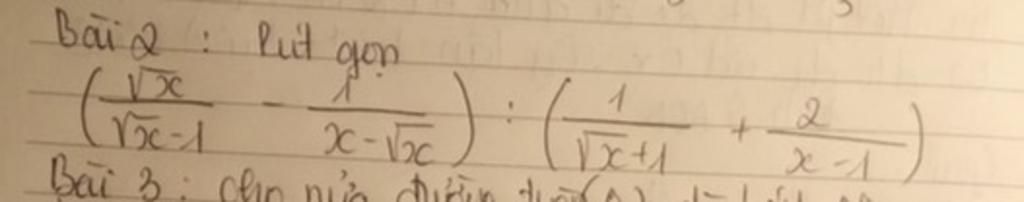 Bài 2 : Rút gọn
(√x/(√x-1) - 1/(x-√x)) : (1/(√x+1) + 2/(x-1))
Bài 3 : Cho nửa đường tròn